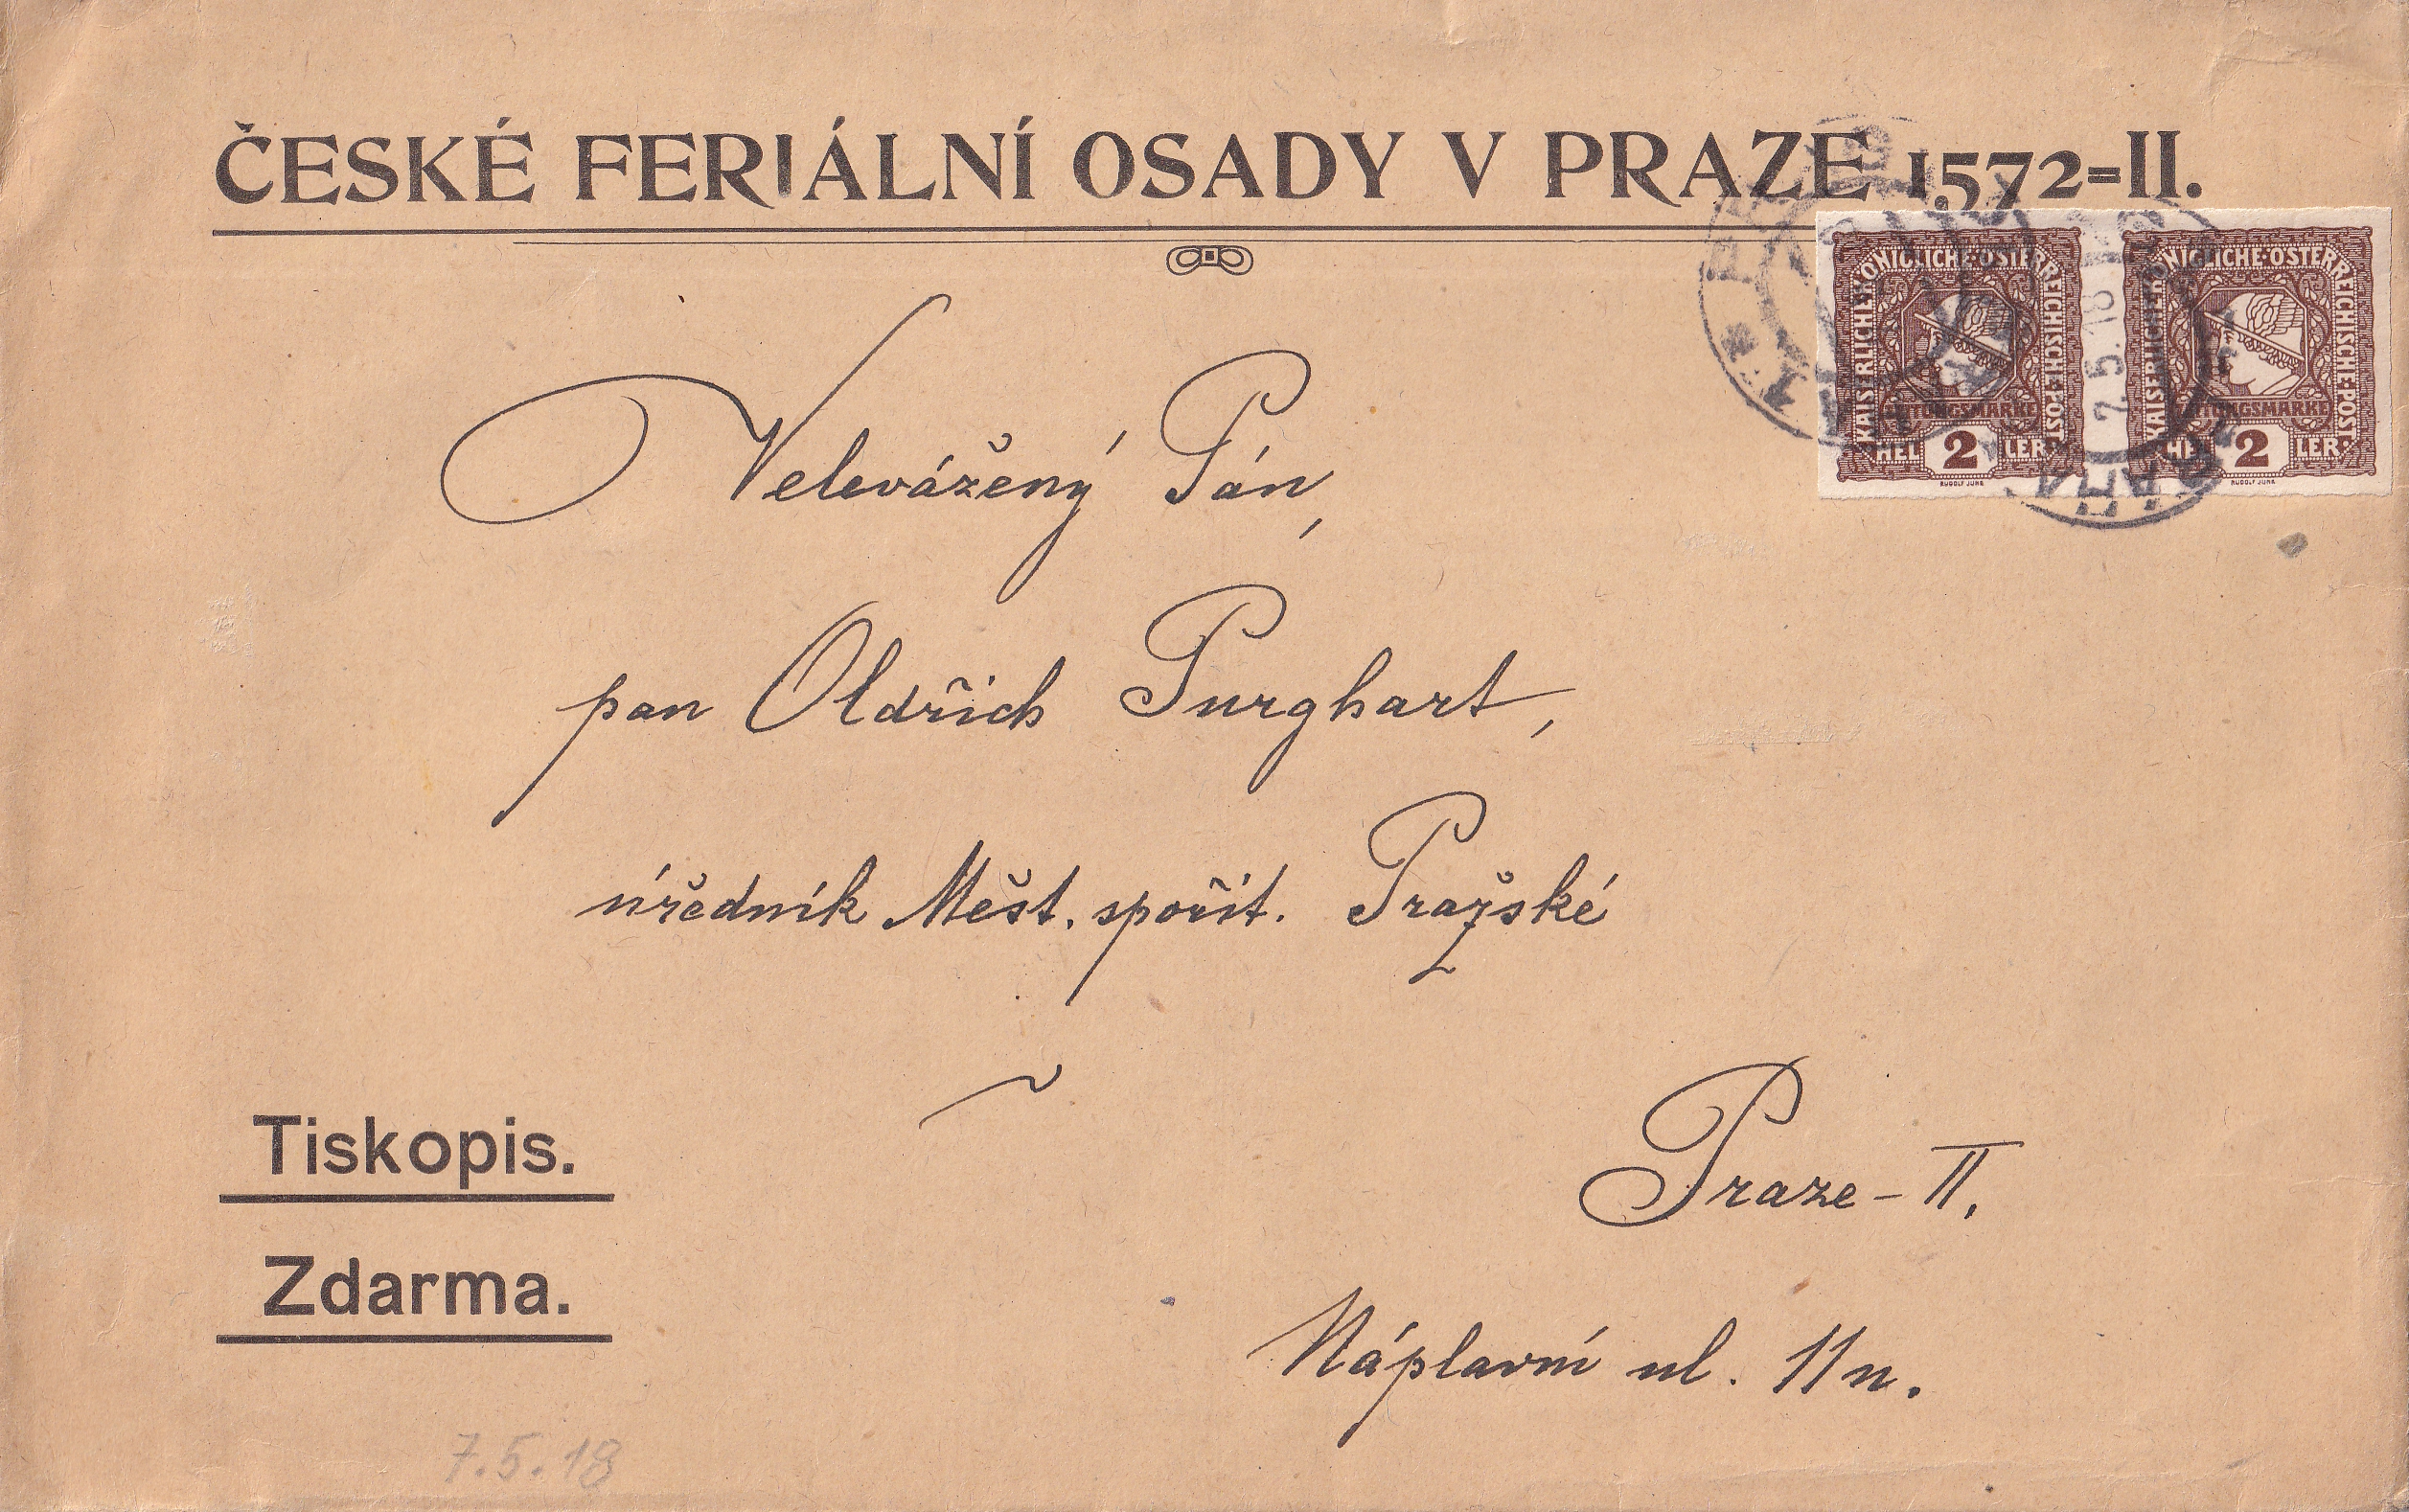 ČESKÉ FERIÁLNÍ OSADY V PRAZE 1572=II.
KAISERLICHE KÖNIGLICHE·ÖSTERREICHISCHE·POST·
ZEITUNGSMARKE
HEL 2 LER
RUDOLF JUNK
KAISERLICHE KÖNIGLICHE·ÖSTERREICHISCHE·POST·
ZEITUNGSMARKE
HEL 2 LER
RUDOLF JUNK
7.5.18
Velevážený Pán,
pan Oldřich Purghart,
úředník Měst. spořit. Pražské
Praze-II.
Náplavní ul. 11n.
Tiskopis.
Zdarma.
7.5.18